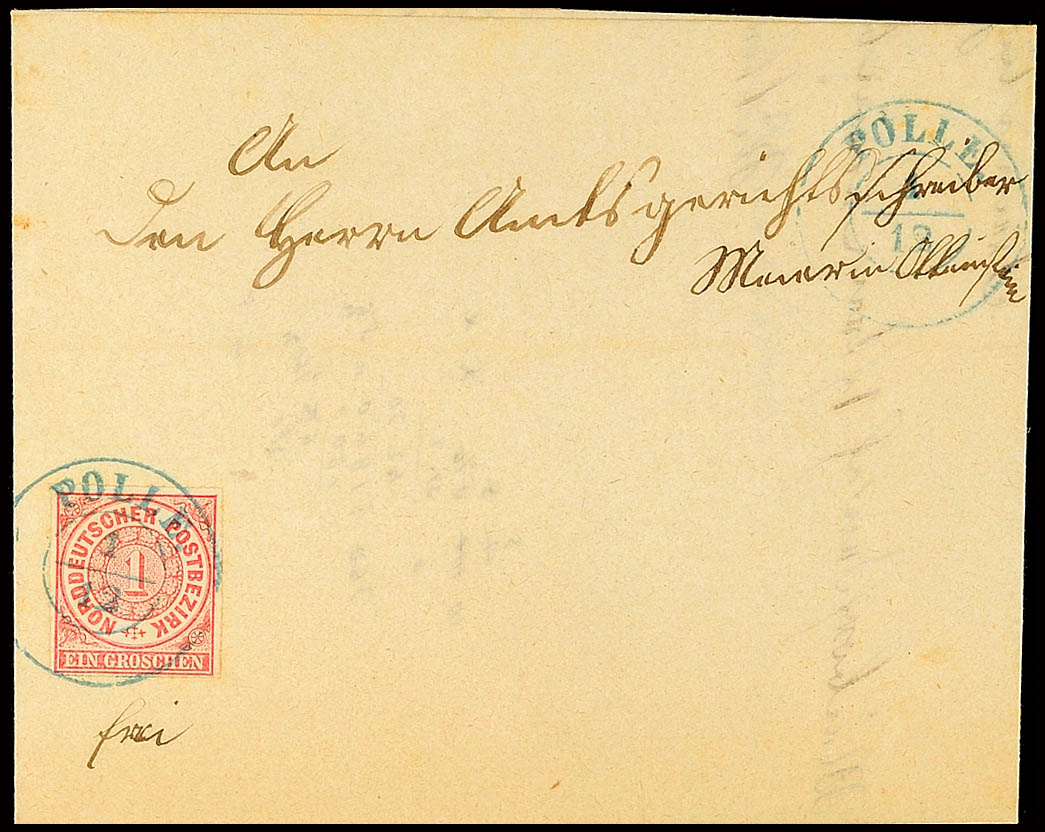 An
den Herrn Amtsgerichtsschreiber
Meier in Ottenstein
POLLE
12
POLLE
1
12
NORDDEUTSCHER POSTBEZIRK
1
EIN GROSCHEN
frei